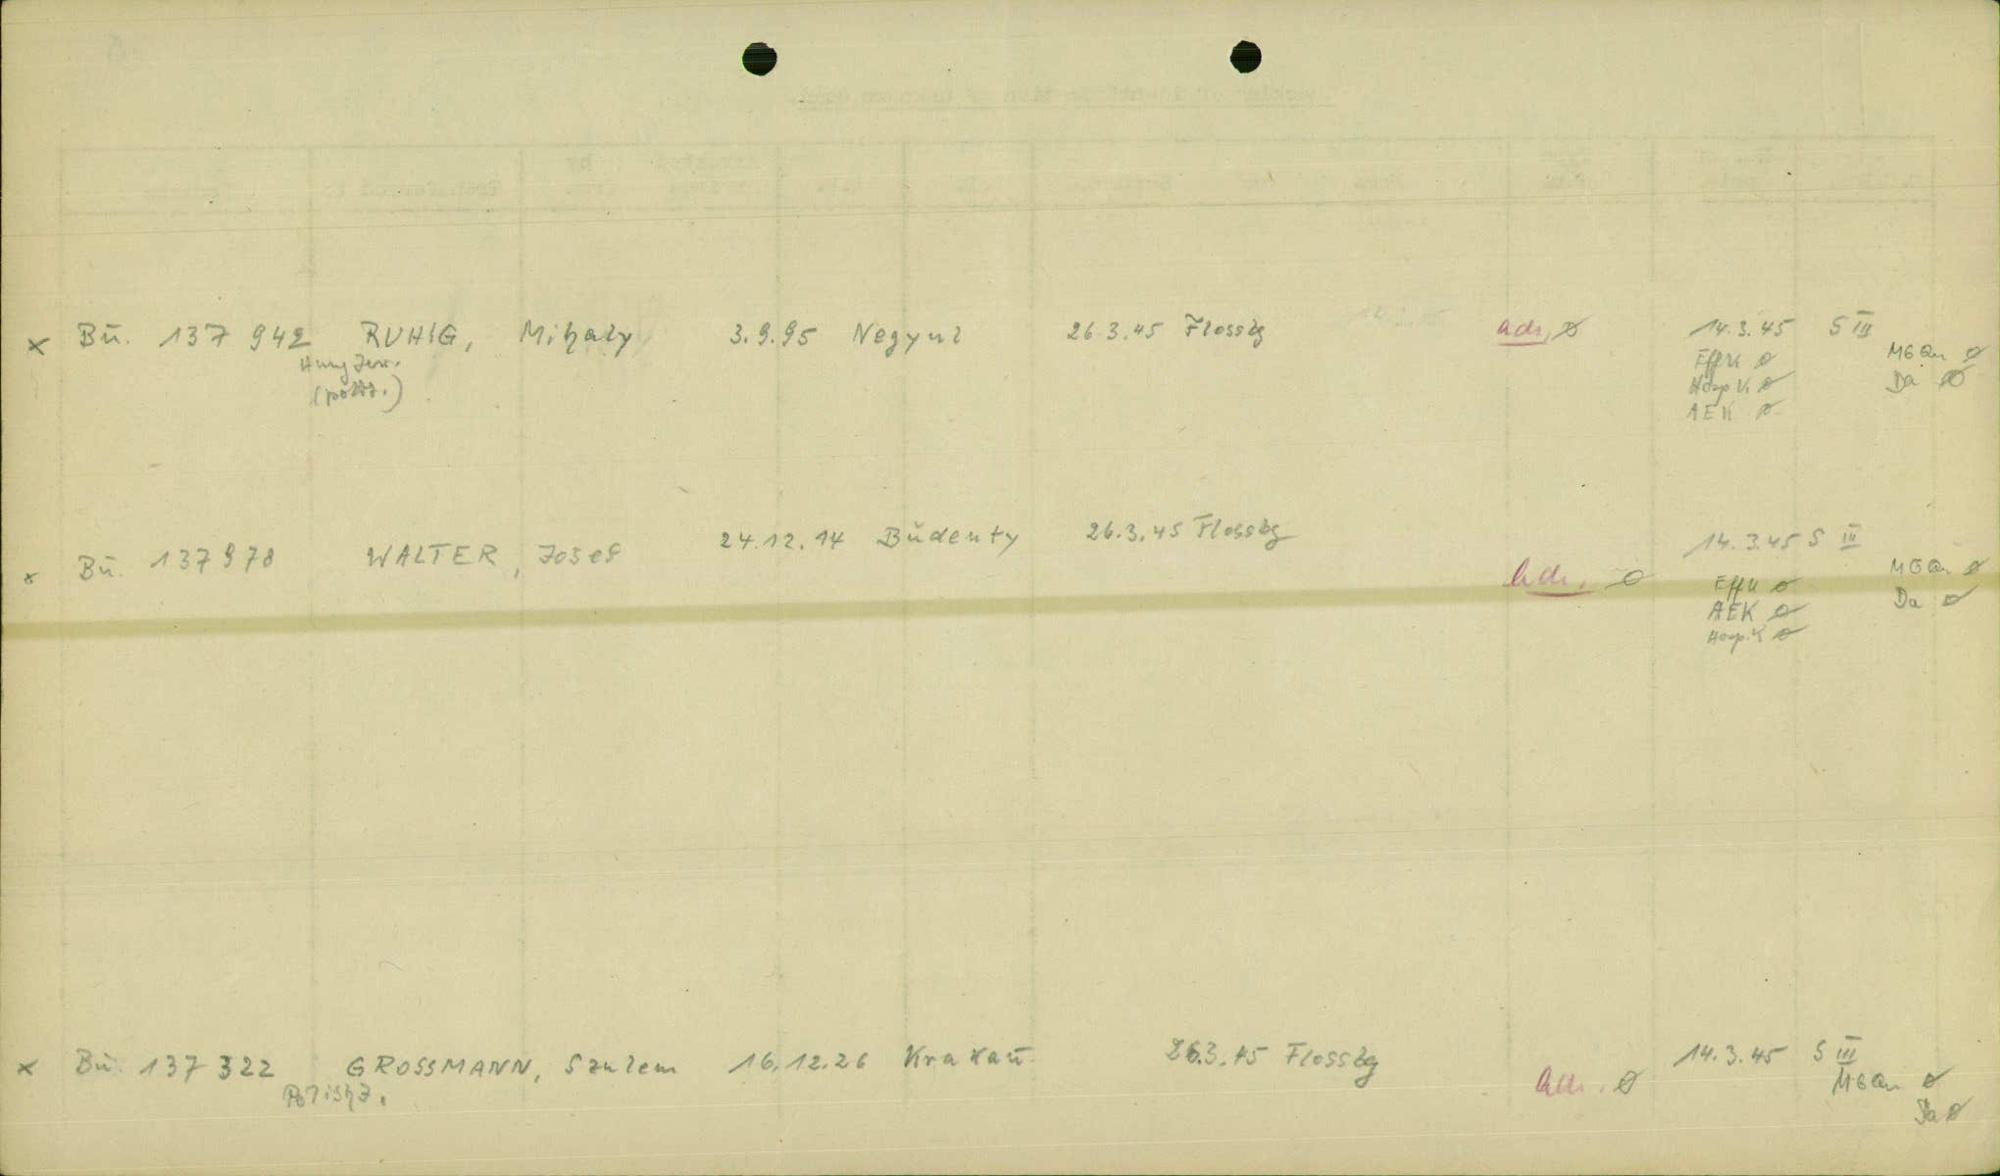 x Bu. 137 942 RUHIG, Mihaly 3.9.95 26.3.45 Flossbg adr, ø 14.3.45 S III
Hung Jew. Eff K ø MGQu ø
(polit.) Hosp K. ø Da ø
AEK ø
x Bu. 137978 WALTER, Josef 24.12.14 26.3.45 Flossbg Adr. ø 14.3.45 S III
Eff K ø MGQu ø
AEK ø Da ø
Hosp. K ø
x Bu. 137 322 GROSSMANN, Szulem 16.12.26 Krakau 26.3.45 Flossbg Adr. ø 14.3.45 S III
Polish J. MGQu ø
Da ø